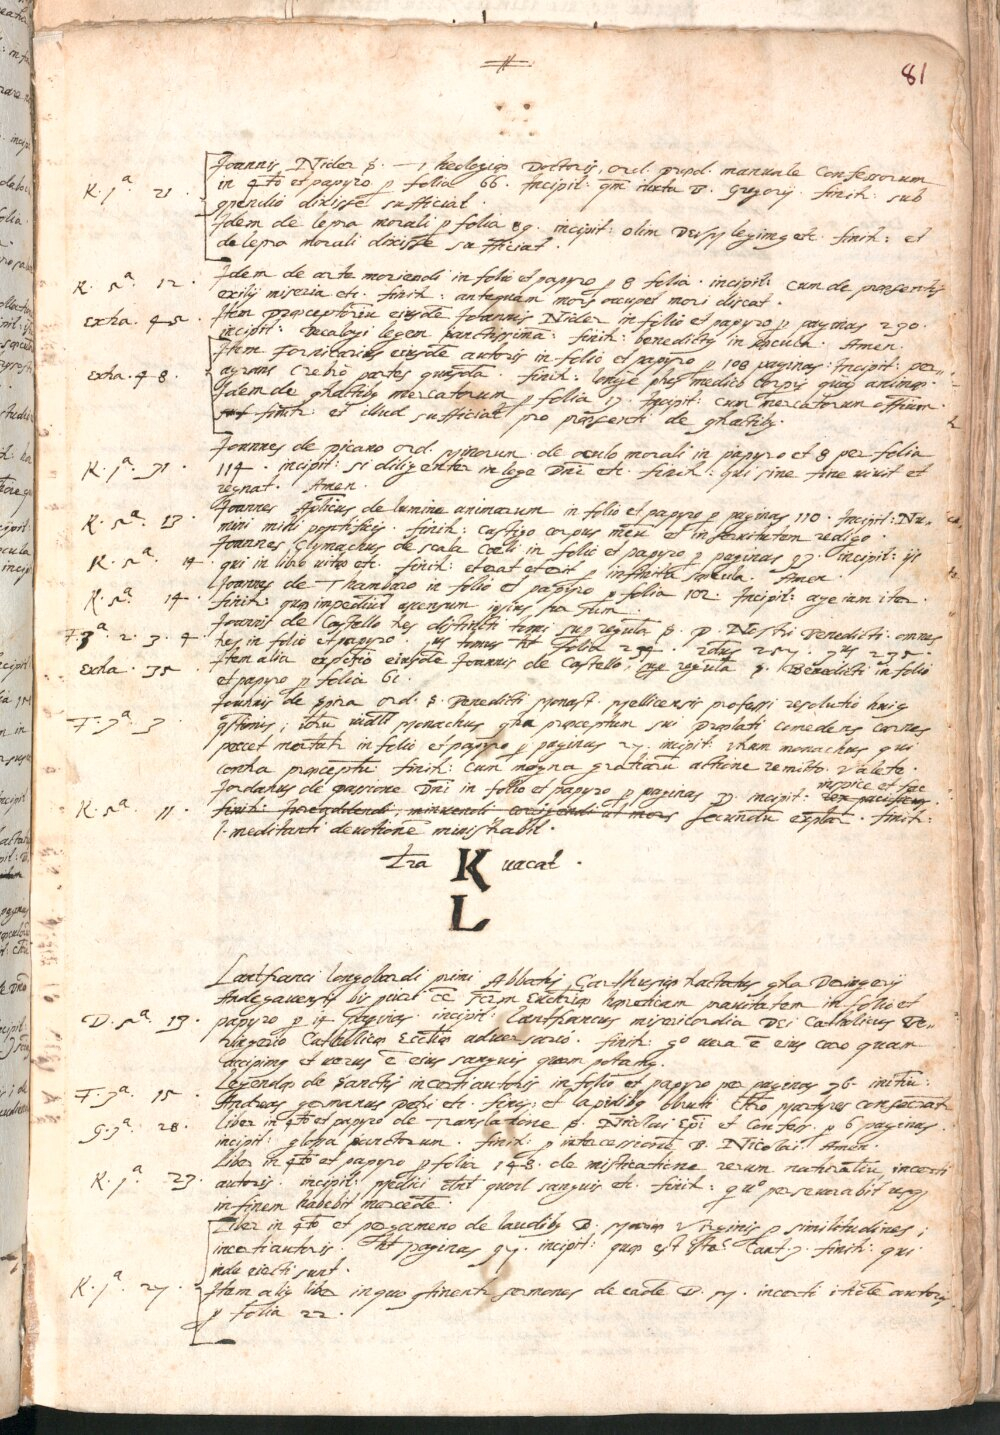 81
Joannis Nider S. Theologiæ Doctoris, ord. præd. manuale Confessorum
K. 1ª. 21. in 4to et papyro p folia 66. Incipit: qm iuxta D. Gregorij. finit: sub
compendio dixisse sufficiat.
Idem de lepra morali p folia 89. incipit: olim etc. finit: et
de lepra morali dixisse sufficiat.
K. 2ª. 12. Idem de arte moriendi in folio et papyro p 8 folia. incipit: cum de præsentis
exilij miseria etc. finit: antequam mors occupet mori discat.
extra. 45. Item præceptoriũ eiusdẽ Joannis Nider in folio et papyro p paginas 270.
incipit: Decalogi legem sanctissimã. finit: benedictus in sæcula. Amen.
extra. 48. Item Formicarius eiusdẽ autoris in folio et papyro p 108 paginas. Incipit: per-
agrans crebro partes quasdã. finit: longe plus medico corpis quàm animæ.
Idem de ctractibus mercatorum p folia 17. Incipit: cum mercatorum officium.
finit: et illud sufficiat pro præsenti de ctractibus.
Joannes de picano ord. Minorum de oculo morali in papyro et 8 per folia
K. 1ª. 31. 114. incipit: si diligenter in lege Dni etc. finit: qui sine fine vivit et
regnat. Amen.
K. 2ª. 13. Joannes de lumine animarum in folio et papyro p paginas 110. Incipit: Nu-
mini mihi pontificis. finit: castigo corpus meũ et in servitutem redigo.
K. 2ª. 14. Joannes Clymachus de scala Cœli in folio et papyro p paginas 97. incipit: ijs
qui in libro vitæ etc. finit: et erat et erit p infinita sæcula. Amen
K. 2ª. 14. Joannes de Thambaco in folio et papyro p folia 102. Incipit: age iam iter.
finit: quæ impediunt ascensum
F. 3ª. 2. 3. 4 Joannis de Castello tres distincti tomi sup regulã S. P. Nostri Benedicti omnes
tres in folio et papyro. jus tomus ht folia 294. 2dus 257. 3us 275.
extra. 35. Item alia expositio eiusdẽ Joannis de Castello, sup regulã S. Benedicti in folio
et papyro p folia 61.
Joannis de Spira ord. S. Benedicti Monast. Mellicensis professi resolutio huius
F. 3ª. 3. qstionis, utrũ Monachus ctra præceptum sui prælati comedens carnes
peccet mortalr in folio et papyro p paginas 27. incipit: utrum monachus qui
contra præceptũ. finit: cum magna gratiarũ actione remitto. Valete.
Jordanus de passione Dni in folio et papyro p paginas incipit: inspice et fac
K. 2ª. 11 secundũ exẽplar. finit:
meditanti devotionẽ ministrabit.
Lra K vacat.
L
Lantfranci longobardi primi Abbatis tractatus ctra Berngerij
Andegavensis hæreticam pravitatem in folio et
D. 2ª. 13. papyro p 14 paginas. incipit: Lantfrancus misericordia Dei Catholicus Be-
rengerio Catholicæ Ecclæ adversario. finit: go vera ẽ eius caro quam
accipimus et verus ẽ eius sanguis quem potamus.
F. 3ª. 15. Legendæ de Sanctis incerti autoris in folio et papyro per paginas 76. initiũ:
Andreas germanus Petri etc. finis: et lapidibus obruti Xro Martyres consecrati
G. 3ª. 28. Liber in 4to et papyro de Translatione S. Nicolai Epi et Confess. p 6 paginas.
incipit: glossa sanctorum. finit: p intercessionẽ B. Nicolai. Amen.
Liber in 4to et papyro p folia 148. de misticatione rerum naturaliũ incerti
K. 1ª. 23. autoris. incipit: Medici dicunt quod sanguis etc. finit: qui perseverabit usq
in finem habebit mercedẽ.
Liber in 4to et pergameno de laudibus B. Mariæ Virginis p similitudines,
incerti autoris. Ht paginas 97. incipit: quæ est ista. Cant. 3. finit: qui
inde viecti sunt.
K. 1ª. 27. Item alius liber in quo stinentur sermones de eadẽ B. M. incerti itidẽ autoris
p folia 22.